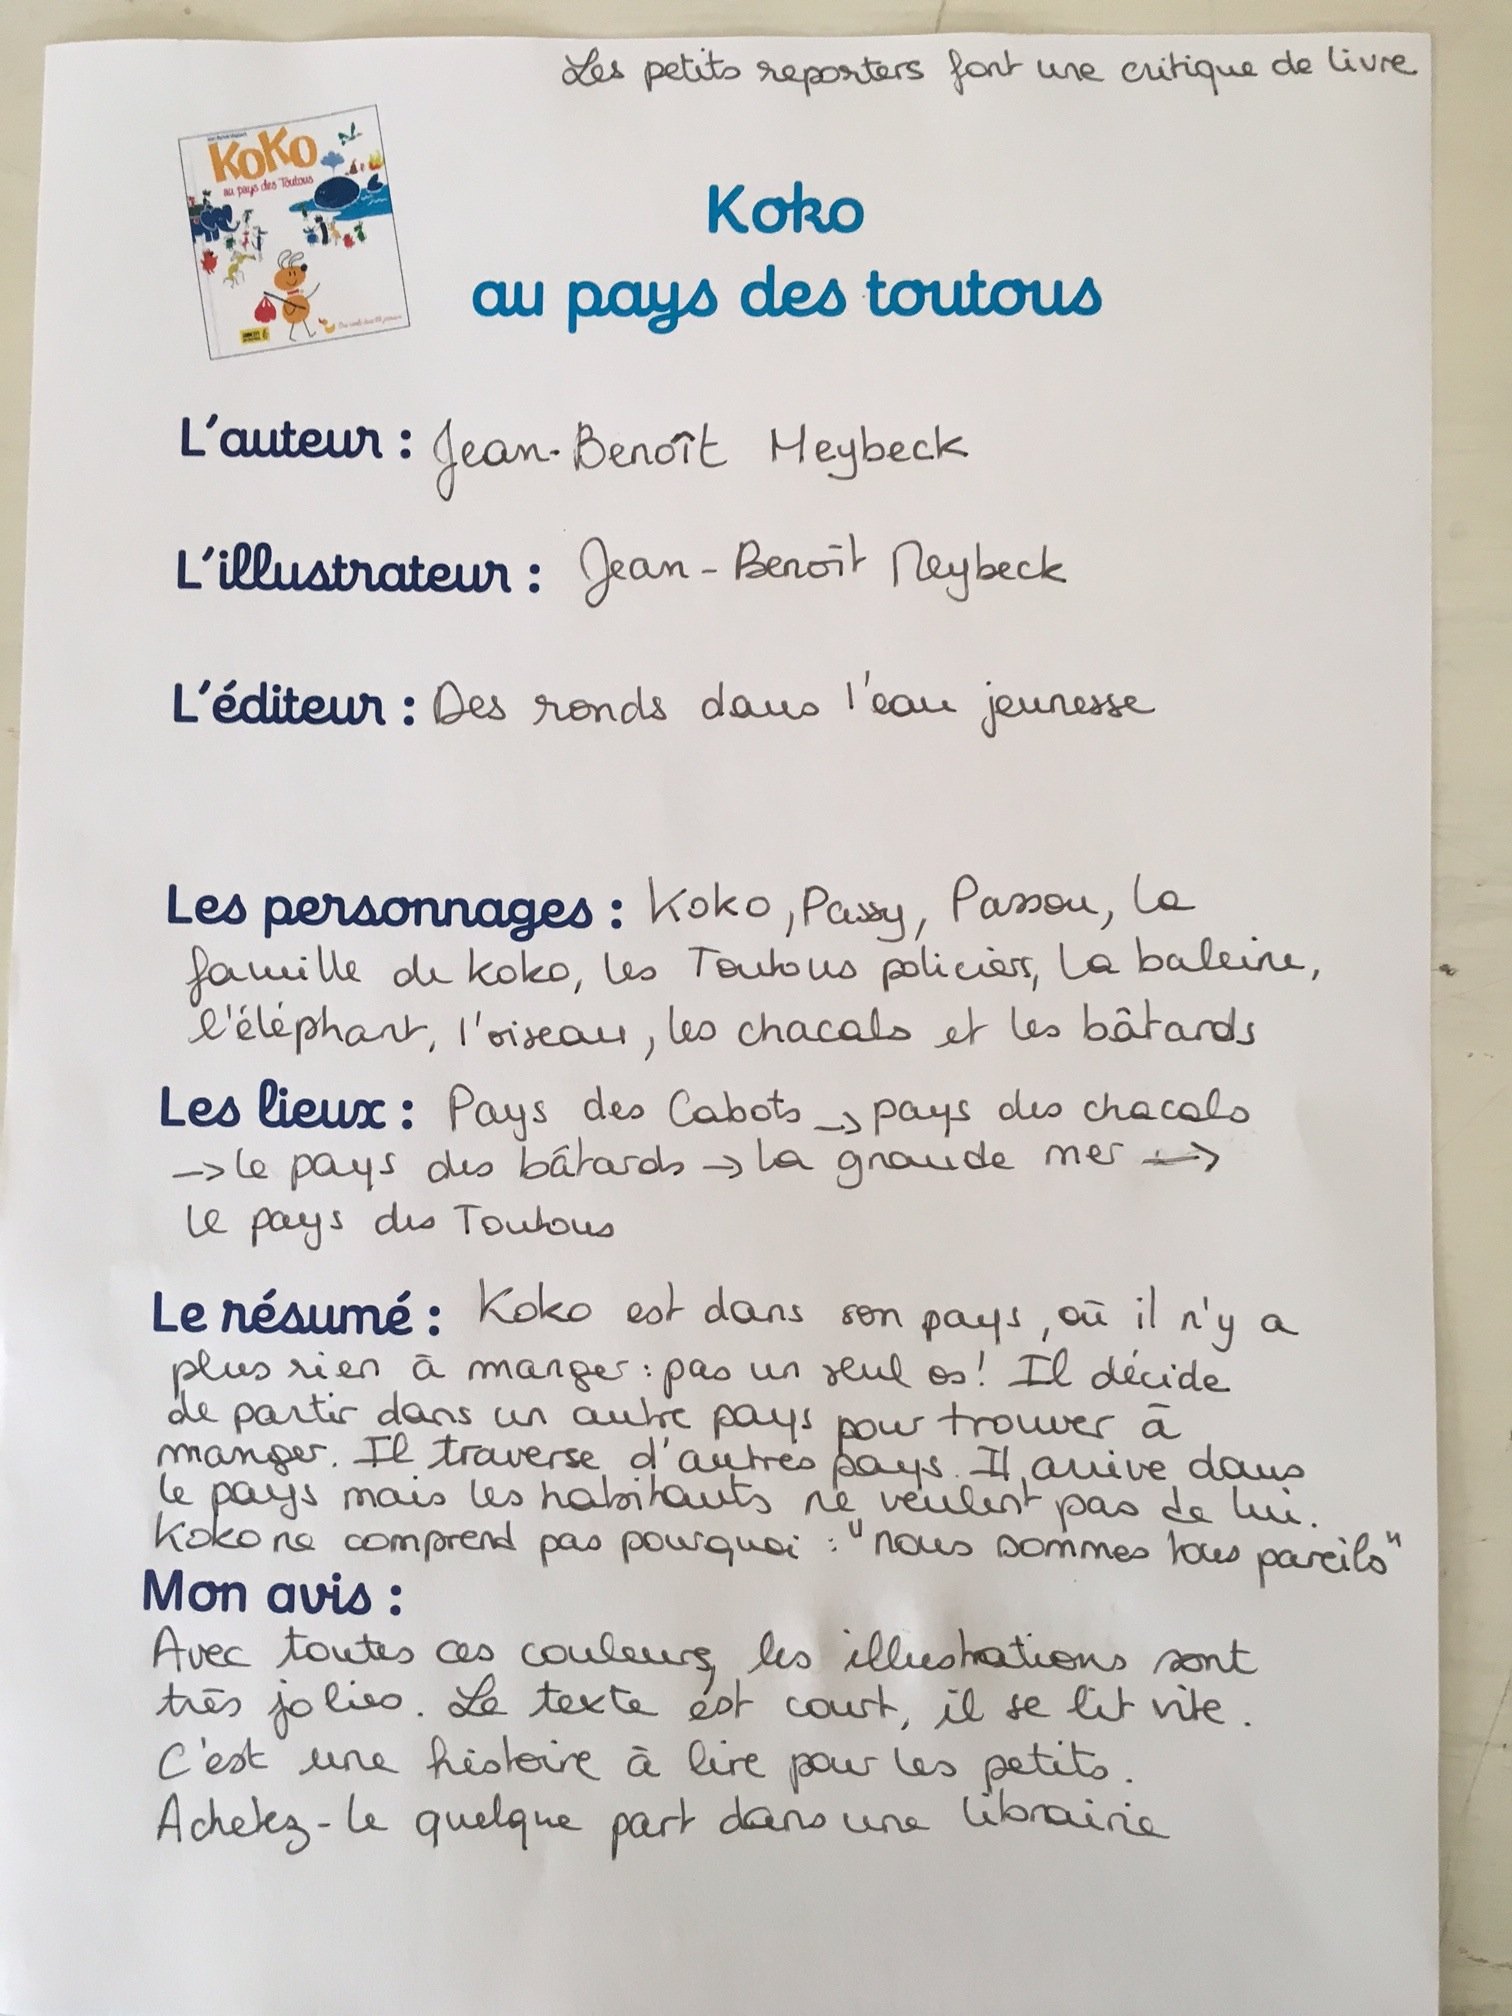 Les petits reporters font une critique de livre
KoKo
au pays des Toutous
Koko
au pays des toutous
L'auteur : Jean-Benoît Meybeck
L'illustrateur : Jean-Benoît Meybeck
L'éditeur : Des ronds dans l'eau jeunesse
Les personnages : Koko, Passy, Passou, la
famille de koko, les Toutous policiers, la baleine,
l'éléphant, l'oiseau, les chacals et les bâtards
Les lieux : Pays des Cabots → pays des chacals
→ le pays des bâtards → la grande mer →
le pays des Toutous
Le résumé : Koko est dans son pays, où il n'y a
plus rien à manger : pas un seul os ! Il décide
de partir dans un autre pays pour trouver à
manger. Il traverse d'autres pays. Il arrive dans
le pays mais les habitants ne veulent pas de lui.
Koko ne comprend pas pourquoi : "nous sommes tous pareils"
Mon avis :
Avec toutes ces couleurs, les illustrations sont
très jolies. Le texte est court, il se lit vite.
C'est une histoire à lire pour les petits.
Achetez-le quelque part dans une librairie